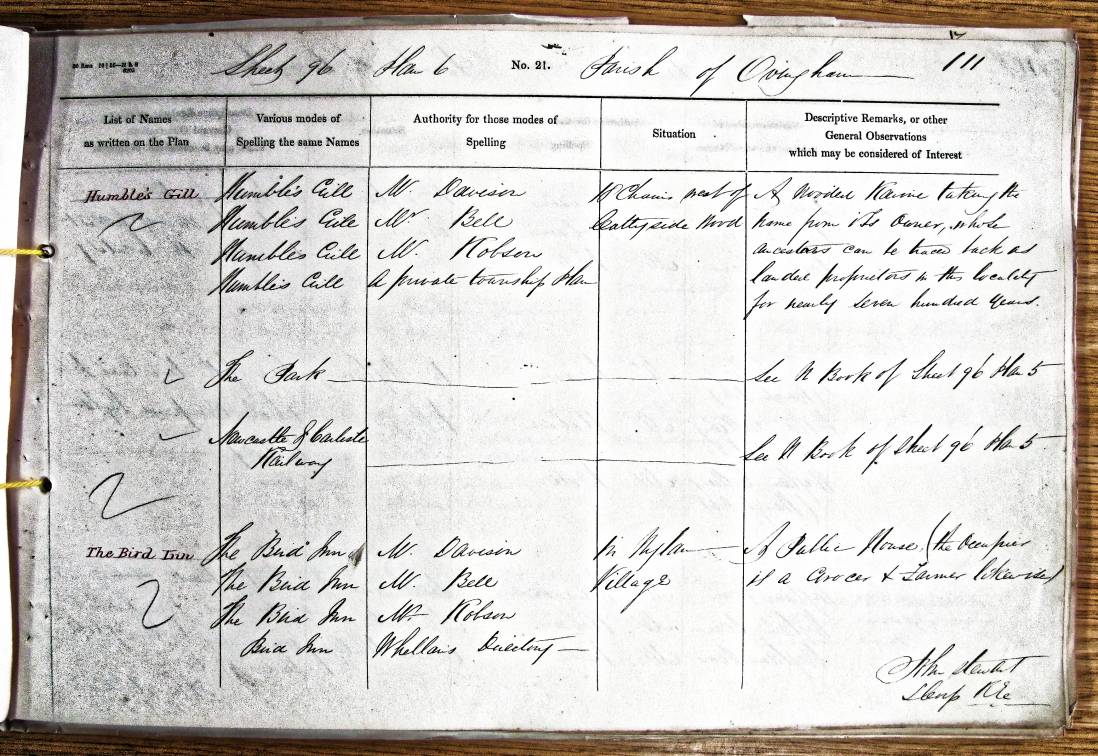 Sheet 96 Plan 6 No. 21. Parish of Ovingham 111
List of Names
as written on the Plan
Various modes of
Spelling the same Names
Authority for those modes of
Spelling
Situation
Descriptive Remarks, or other
General Observations
which may be considered of Interest
Humble's Gill Humble's Gill Mr. Davison 10 Chains west of A Wooded Ravine taking the
Humble's Gill Mr. Bell Wood name from its Owner, whose
Humble's Gill Mr. Robson ancestors can be traced back as
Humble's Gill A private township Plan landed proprietors in this locality
for nearly seven hundred years.
The Park See N Book of Sheet 96 Plan 5
Newcastle & Carlisle
Railway See N Book of Sheet 96 Plan 5
The Bird Inn The Bird Inn Mr. Davison In Rylam A Public House, (the Occupier
The Bird Inn Mr. Bell Village is a Grocer & Farmer likewise)
The Bird Inn Mr. Robson
Bird Inn Whellan's Directory
John Stewart
L Corp R.E.